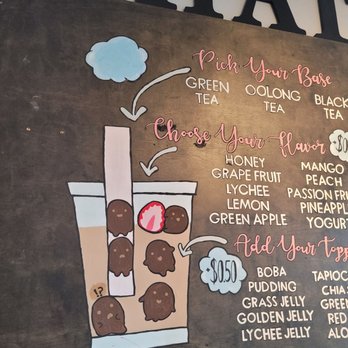 Pick Your Base
GREEN TEA
OOLONG TEA
BLACK TEA
Choose Your Flavor
$0
HONEY
GRAPE FRUIT
LYCHEE
LEMON
GREEN APPLE
MANGO
PEACH
PASSION FRU
PINEAPPLE
YOGURT
Add Your Topp
$0.50
BOBA
PUDDING
GRASS JELLY
GOLDEN JELLY
LYCHEE JELLY
TAPIOC
CHIA
GREEN
RED
ALO
!?